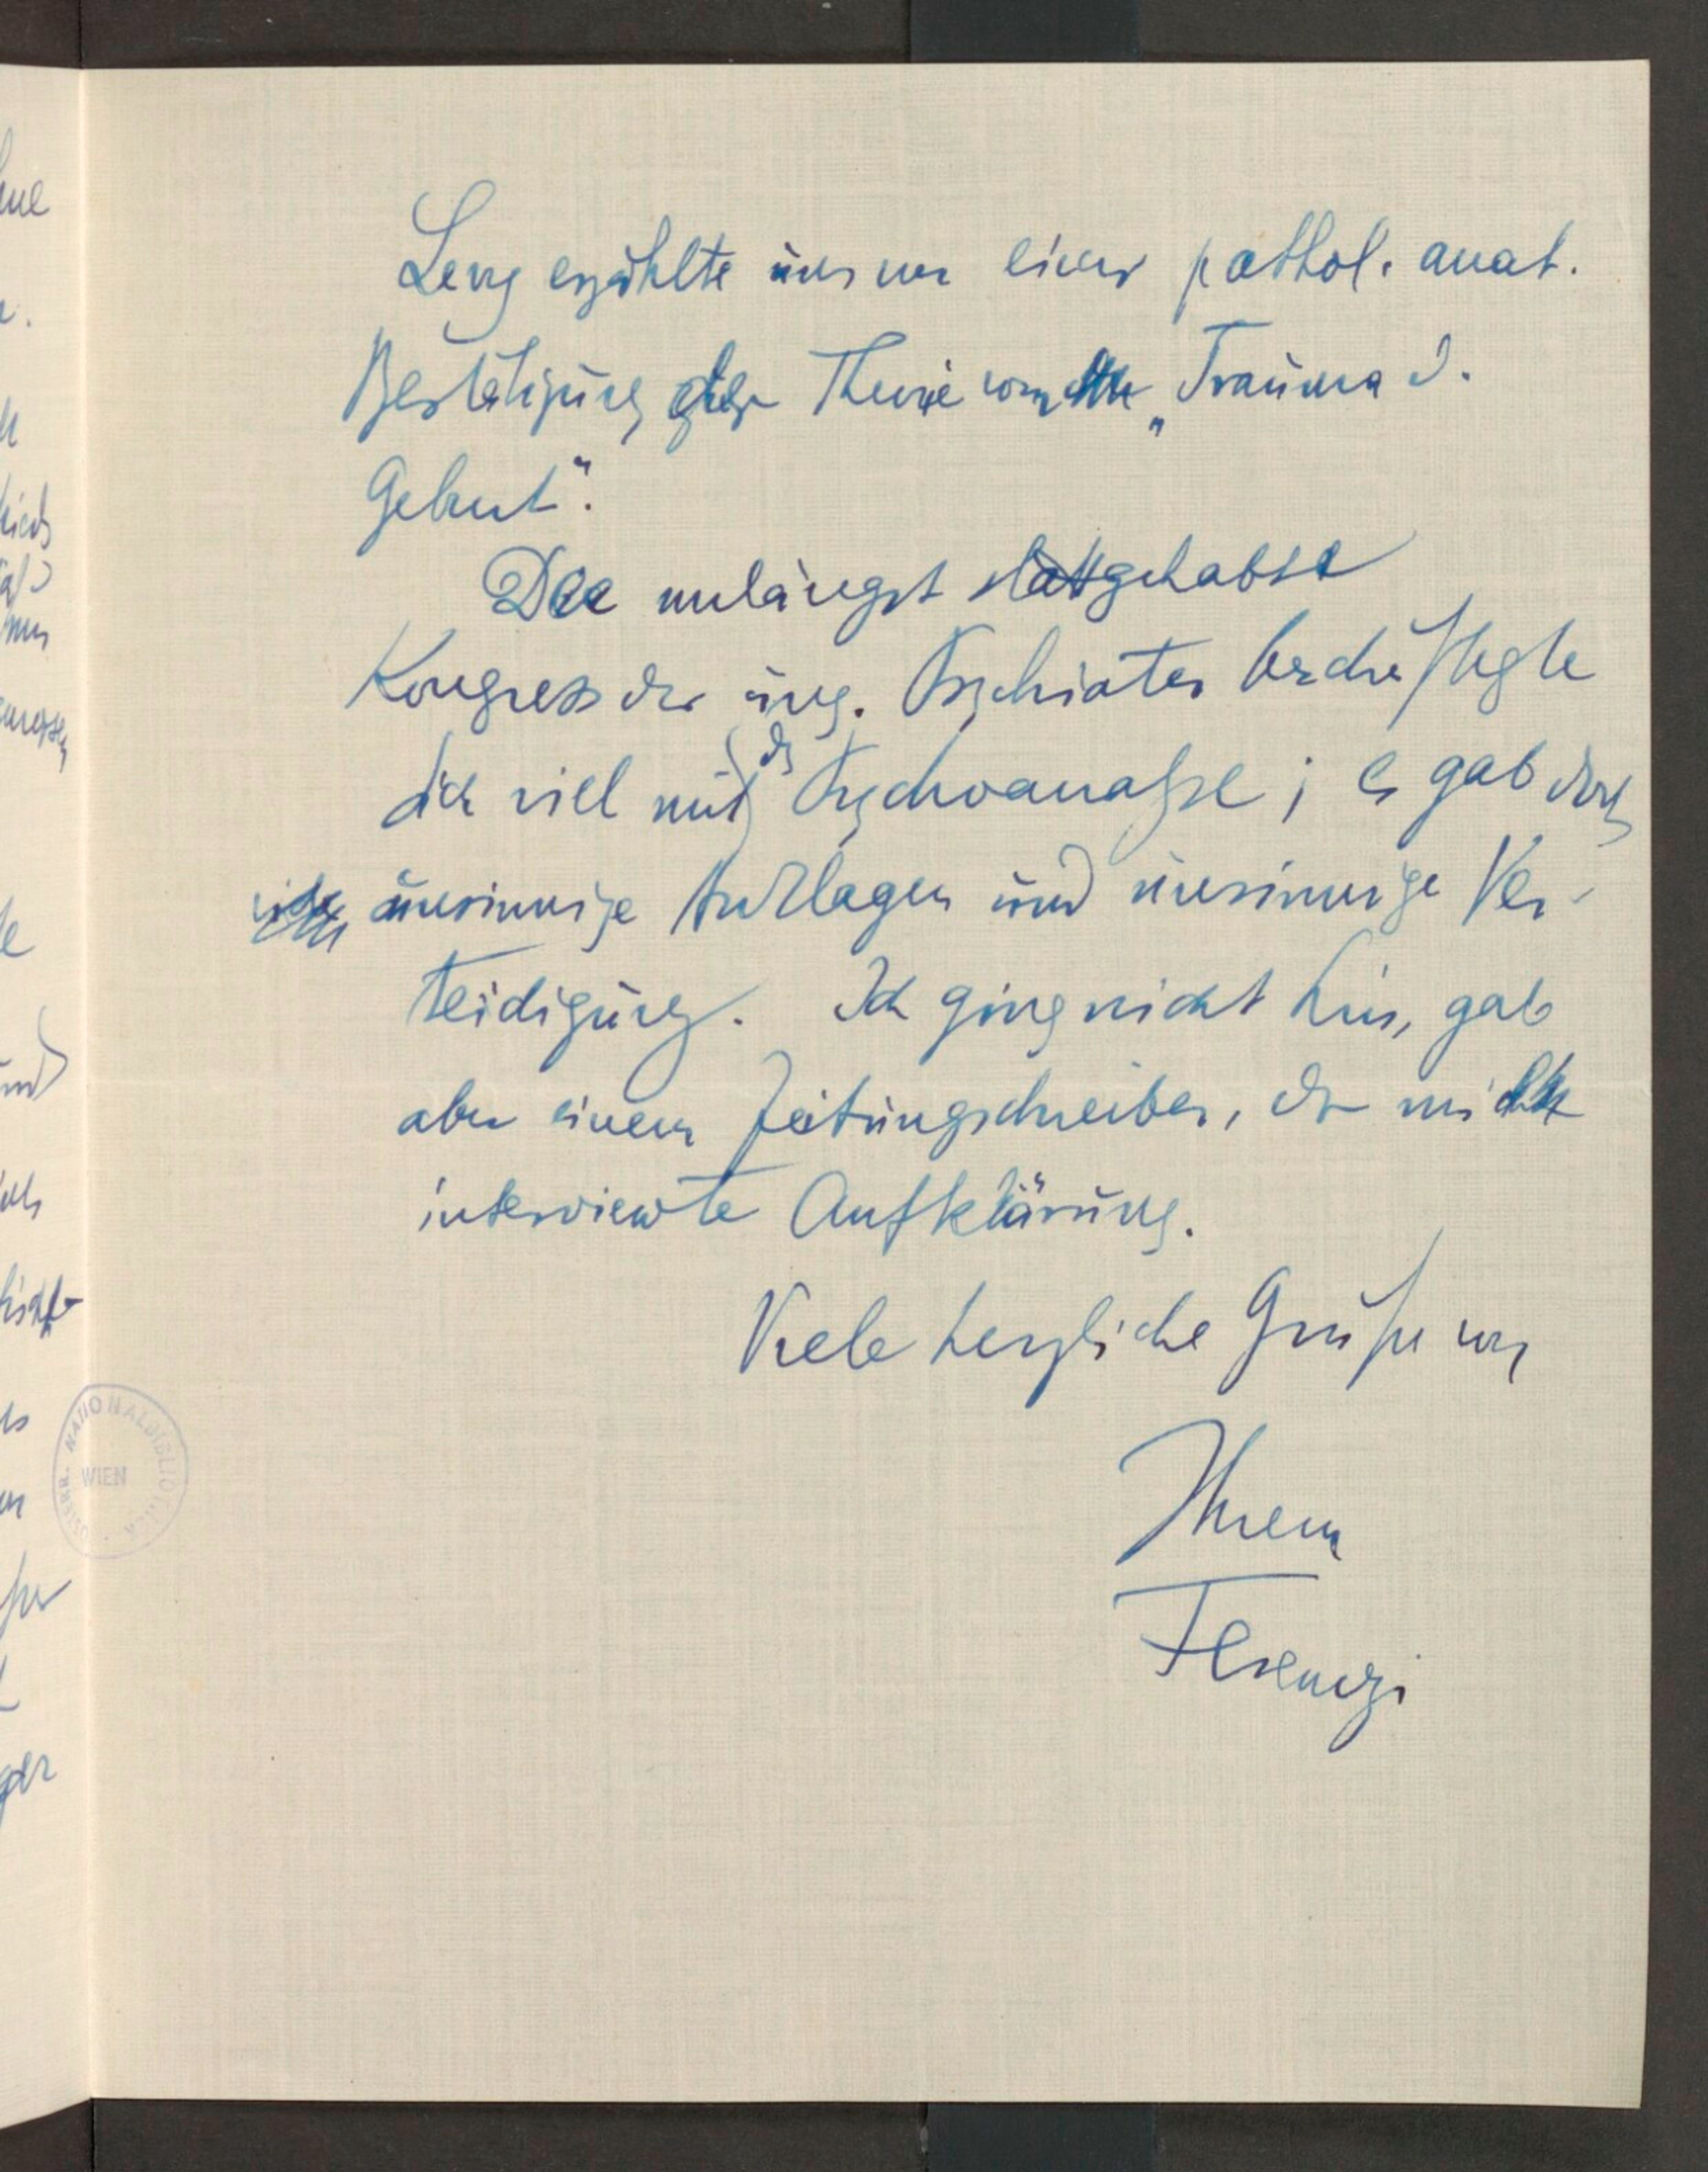 Levy erzählte uns von einer pathol. anat.
Bestätigung der Theorie vom „Trauma d.
Geburt“.
Der unlängst stattgehabte
Kongress der ung. Psychiater beschäftigte
sich viel mit der Psychoanalyse; es gab dort
unsinnige Anklagen und unsinnige Ver-
teidigung. Ich ging nicht hin, gab
aber einem Zeitungschreiber, der mich
interviewte Aufklärung.
Viele herzliche Grüße von
Ihrem
Ferenczi
ÖSTERR. NATIONALBIBLIOTHEK
WIEN